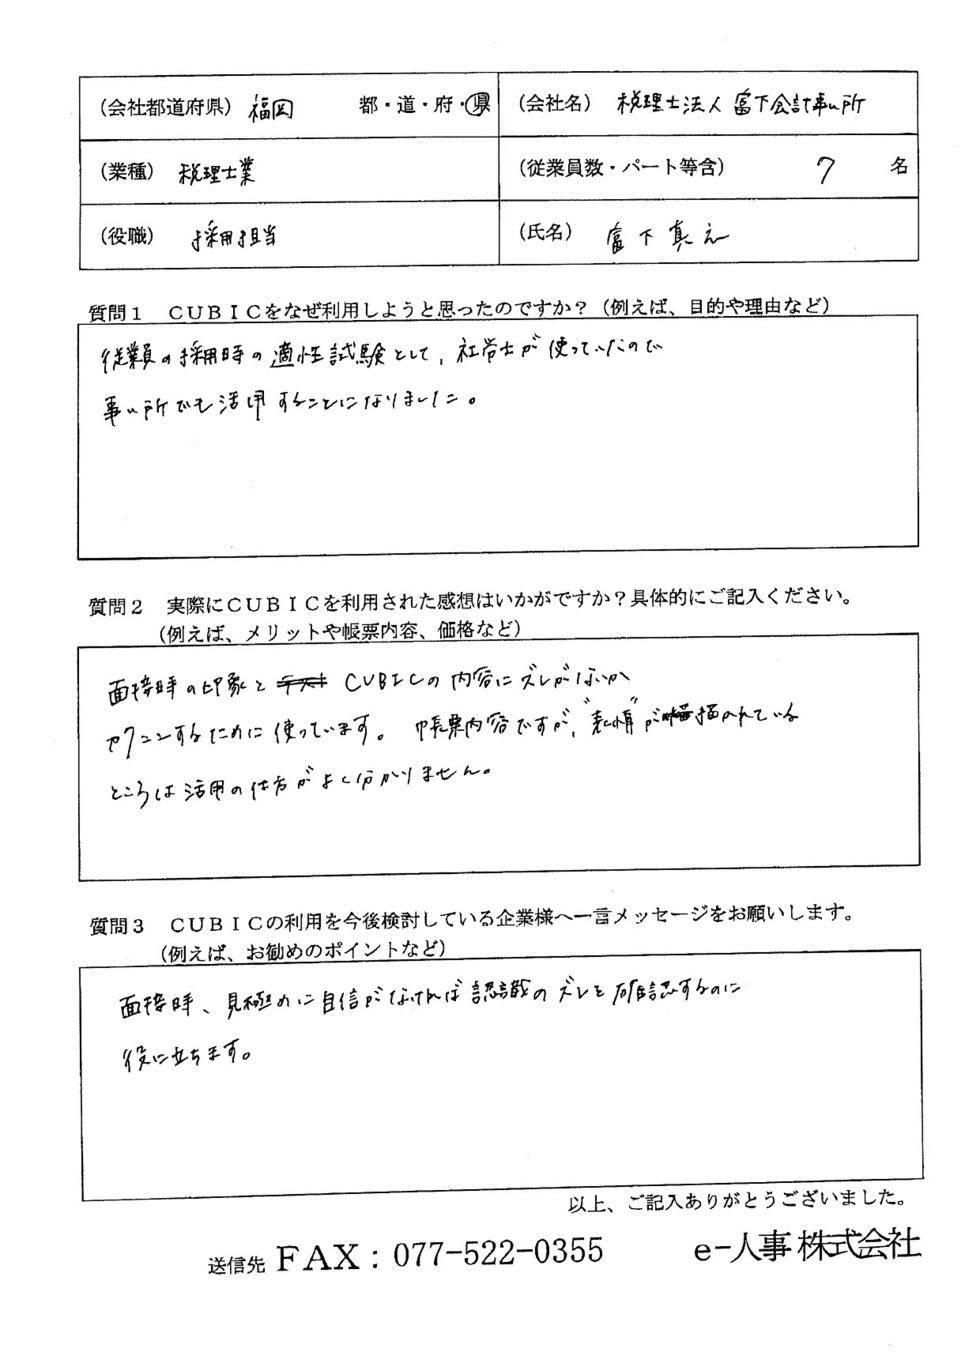 (会社都道府県) 福岡 都・道・府・県
(会社名) 税理士法人 冨下会計事ム所
(業種) 税理士業
(従業員数・パート等含) 7 名
(役職) 採用担当
(氏名) 冨下真
質問1 CUBICをなぜ利用しようと思ったのですか？(例えば、目的や理由など)
従業員の採用時の適性試験として、社労士が使っていたので
事ム所でも活用することになりました。
質問2 実際にCUBICを利用された感想はいかがですか？具体的にご記入ください。
(例えば、メリットや帳票内容、価格など)
面接時の印象と CUBICの内容にズレがないか
カクニンするために使っています。帳票内容ですが、"表情"が描かれている
ところは活用の仕方がよく分かりません。
質問3 CUBICの利用を今後検討している企業様へ一言メッセージをお願いします。
(例えば、お勧めのポイントなど)
面接時、見極めに自信がなければ認識のズレを確認するのに
役に立ちます。
以上、ご記入ありがとうございました。
送信先 FAX：077-522-0355 e-人事株式会社